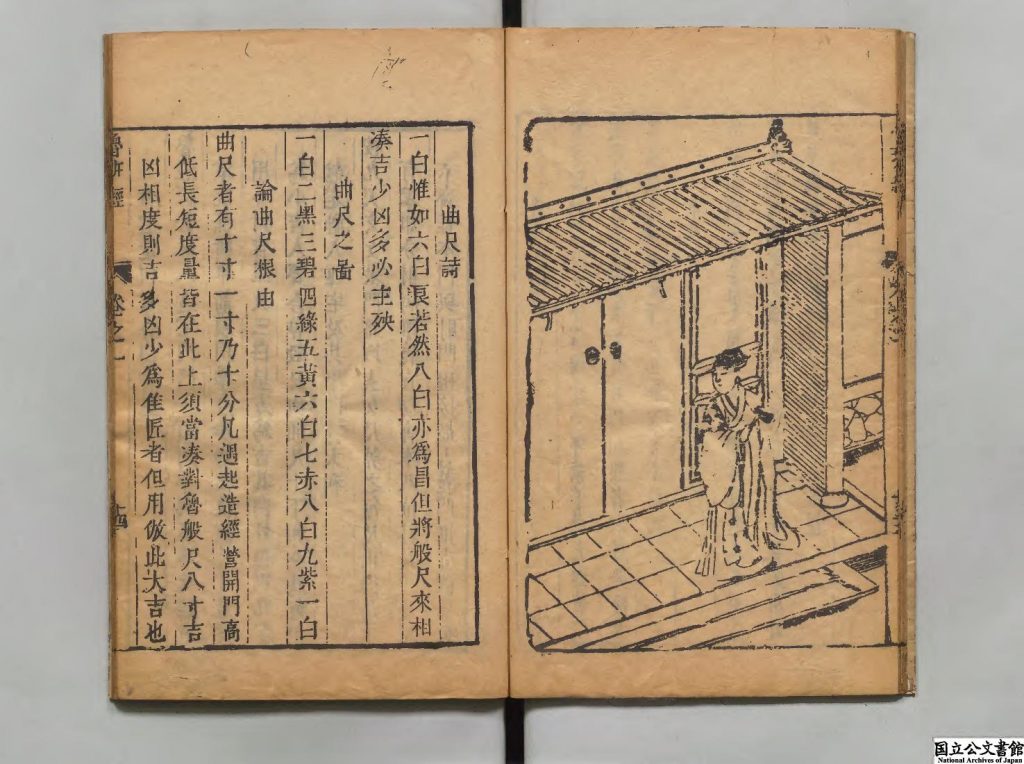 曲尺詩
一白惟如六白良若然八白亦爲昌但將般尺來相
凑吉少凶多必主殃
曲尺之啚
一白二黑三碧四綠五黃六白七赤八白九紫一白
論曲尺根由
曲尺者有十寸一寸乃十分凡遇起造經營開門高
低長短度量皆在此上須當凑對魯般尺八寸吉
凶相度則吉多凶少爲佳匠者但用倣此大吉也
魯班經
卷之一
十四
国立公文書館
National Archives of Japan